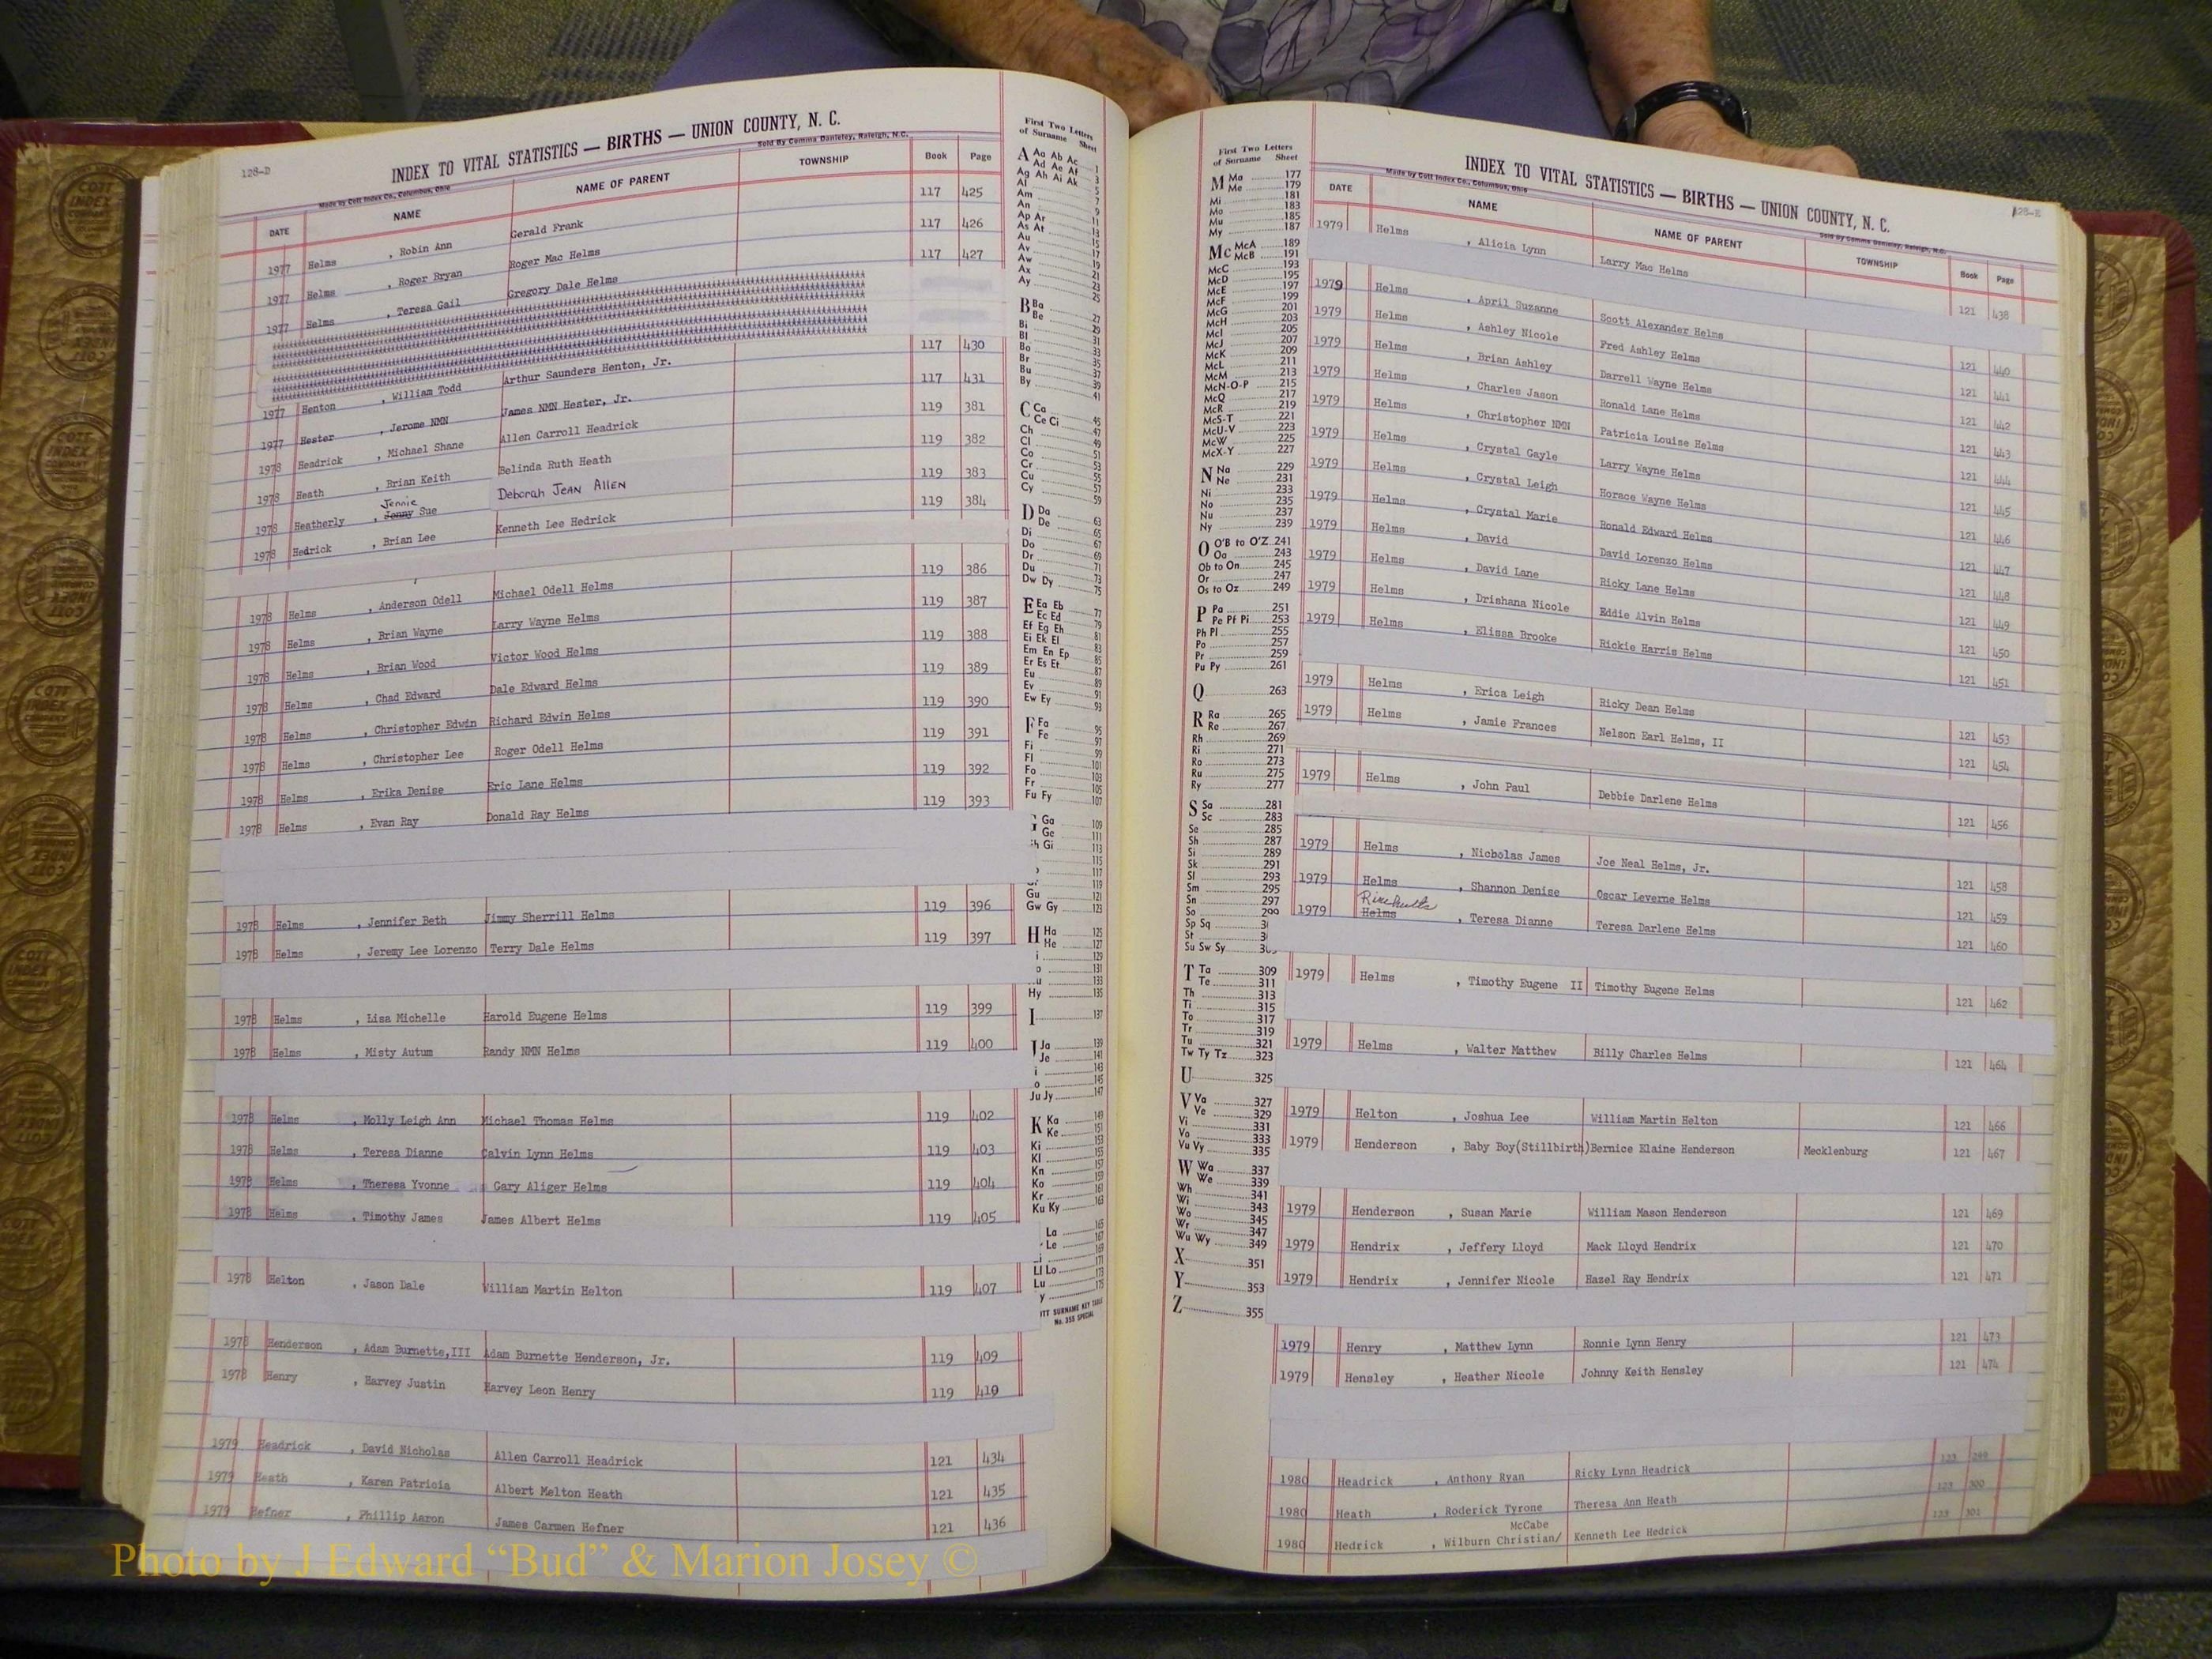 128-D
INDEX TO VITAL STATISTICS — BIRTHS — UNION COUNTY, N. C.
Made by Cott Index Co., Columbus, Ohio
Sold By Comma Danieley, Raleigh, N.C.
DATE NAME NAME OF PARENT TOWNSHIP Book Page
1977 Helms , Robin Ann Gerald Frank 117 425
1977 Helms , Roger Bryan Roger Mac Helms 117 426
1977 Helms , Teresa Gail Gregory Dale Helms 117 427
1977 Henton , William Todd Arthur Saunders Henton, Jr. 117 430
1977 Hester , Jerome NMN James NMN Hester, Jr. 117 431
1978 Headrick , Michael Shane Allen Carroll Headrick 119 381
1978 Heath , Brian Keith Belinda Ruth Heath 119 382
1978 Heatherly , Jennie Jonny Sue Deborah JEAN ALLEN 119 383
1978 Hedrick , Brian Lee Kenneth Lee Hedrick 119 384
1978 Helms , Anderson Odell Michael Odell Helms 119 386
1978 Helms , Brian Wayne Larry Wayne Helms 119 387
1978 Helms , Brian Wood Victor Wood Helms 119 388
1978 Helms , Chad Edward Dale Edward Helms 119 389
1978 Helms , Christopher Edwin Richard Edwin Helms 119 390
1978 Helms , Christopher Lee Roger Odell Helms 119 391
1978 Helms , Erika Denise Eric Lane Helms 119 392
1978 Helms , Evan Ray Donald Ray Helms 119 393
1978 Helms , Jennifer Beth Jimmy Sherrill Helms 119 396
1978 Helms , Jeremy Lee Lorenzo Terry Dale Helms 119 397
1978 Helms , Lisa Michelle Harold Eugene Helms 119 399
1978 Helms , Misty Autum Randy NMN Helms 119 400
1978 Helms , Molly Leigh Ann Michael Thomas Helms 119 402
1978 Helms , Teresa Dianne Calvin Lynn Helms 119 403
1978 Helms , Theresa Yvonne Gary Aliger Helms 119 404
1978 Helms , Timothy James James Albert Helms 119 405
1978 Helton , Jason Dale William Martin Helton 119 407
1978 Henderson , Adam Burnette,III Adam Burnette Henderson, Jr. 119 409
1978 Henry , Harvey Justin Harvey Leon Henry 119 410
1979 Headrick , David Nicholas Allen Carroll Headrick 121 434
1979 Heath , Karen Patricia Albert Melton Heath 121 435
1979 Hefner , Phillip Aaron James Carmen Hefner 121 436
First Two Letters
of Surname Sheet
A Aa Ab Ac 1
Ad Ae Af 3
Ag Ah Ai Ak 5
Al 7
Am 9
An 11
Ap Ar 13
As At 15
Au 17
Av 19
Aw 21
Ax 23
Ay 25
B Ba 27
Be 29
Bi 31
Bl 33
Bo 35
Br 37
Bu 39
By 41
C Ca 45
Ce Ci 47
Ch 49
Cl 51
Co 53
Cr 55
Cu 57
Cy 59
D Da 63
De 65
Di 67
Do 69
Dr 71
Du 73
Dw Dy 75
E Ea Eb 77
Ec Ed 79
Ef Eg Eh 81
Ei Ek El 83
Em En Ep 85
Er Es Et 87
Eu 89
Ev 91
Ew Ey 93
F Fa 95
Fe 97
Fi 99
Fl 101
Fo 103
Fr 105
Fu Fy 107
Ga 109
Ge 111
Gi 113
115
117
119
Gu 121
Gw Gy 123
H Ha 125
He 127
i 129
o 131
u 133
Hy 135
I 137
J Ja 139
Je 141
i 143
o 145
Ju Jy 147
K Ka 149
Ke 151
Ki 153
Kl 155
Kn 157
Ko 159
Kr 161
Ku Ky 163
La 165
Le 167
i 169
Ll Lo 171
Lu 173
y 175
OTT SURNAME KEY TABLE
No. 355 SPECIAL
First Two Letters
of Surname Sheet
M Ma 177
Me 179
Mi 181
Mo 183
Mu 185
My 187
Mc McA 189
McB 191
McC 193
McD 195
McE 197
McF 199
McG 201
McH 203
McI 205
McJ 207
McK 209
McL 211
McM 213
McN-O-P 215
McQ 217
McR 219
McS-T 221
McU-V 223
McW 225
McX-Y 227
N Na 229
Ne 231
Ni 233
No 235
Nu 237
Ny 239
O O'B to O'Z 241
Oa 243
Ob to On 245
Or 247
Os to Oz 249
P Pa 251
Pe Pf Pi 253
Ph Pl 255
Po 257
Pr 259
Pu Py 261
Q 263
R Ra 265
Re 267
Rh 269
Ri 271
Ro 273
Ru 275
Ry 277
S Sa 281
Sc 283
Se 285
Sh 287
Si 289
Sk 291
Sl 293
Sm 295
Sn 297
So 299
Sp Sq
St
Su Sw Sy
T Ta 309
Te 311
Th 313
Ti 315
To 317
Tr 319
Tu 321
Tw Ty Tz 323
U 325
V Va 327
Ve 329
Vi 331
Vo 333
Vu Vy 335
W Wa 337
We 339
Wh 341
Wi 343
Wo 345
Wr 347
Wu Wy 349
X 351
Y 353
Z 355
128-E
INDEX TO VITAL STATISTICS — BIRTHS — UNION COUNTY, N. C.
Made by Cott Index Co., Columbus, Ohio
Sold By Comma Danieley, Raleigh, N.C.
DATE NAME NAME OF PARENT TOWNSHIP Book Page
1979 Helms , Alicia Lynn Larry Mac Helms 121 438
1979 Helms , April Suzanne Scott Alexander Helms 121 440
1979 Helms , Ashley Nicole Fred Ashley Helms 121 441
1979 Helms , Brian Ashley Darrell Wayne Helms 121 442
1979 Helms , Charles Jason Ronald Lane Helms 121 443
1979 Helms , Christopher NMN Patricia Louise Helms 121 444
1979 Helms , Crystal Gayle Larry Wayne Helms 121 445
1979 Helms , Crystal Leigh Horace Wayne Helms 121 446
1979 Helms , Crystal Marie Ronald Edward Helms 121 447
1979 Helms , David David Lorenzo Helms 121 448
1979 Helms , David Lane Ricky Lane Helms 121 449
1979 Helms , Drishana Nicole Eddie Alvin Helms 121 450
1979 Helms , Elissa Brooke Rickie Harris Helms 121 451
1979 Helms , Erica Leigh Ricky Dean Helms 121 453
1979 Helms , Jamie Frances Nelson Earl Helms, II 121 454
1979 Helms , John Paul Debbie Darlene Helms 121 456
1979 Helms , Nicholas James Joe Neal Helms, Jr. 121 458
1979 Helms , Shannon Denise Oscar Leverne Helms 121 459
1979 Helms , Teresa Dianne Teresa Darlene Helms 121 460
1979 Helms , Timothy Eugene II Timothy Eugene Helms 121 462
1979 Helms , Walter Matthew Billy Charles Helms 121 464
1979 Helton , Joshua Lee William Martin Helton 121 466
1979 Henderson , Baby Boy(Stillbirth) Bernice Elaine Henderson Mecklenburg 121 467
1979 Henderson , Susan Marie William Mason Henderson 121 469
1979 Hendrix , Jeffery Lloyd Mack Lloyd Hendrix 121 470
1979 Hendrix , Jennifer Nicole Hazel Ray Hendrix 121 471
1979 Henry , Matthew Lynn Ronnie Lynn Henry 121 473
1979 Hensley , Heather Nicole Johnny Keith Hensley 121 474
1980 Headrick , Anthony Ryan Ricky Lynn Headrick 123 299
1980 Heath , Roderick Tyrone Theresa Ann Heath 123 300
McCabe
1980 Hedrick , Wilburn Christian/ Kenneth Lee Hedrick 123 301
Photo by J Edward “Bud” & Marion Josey ©